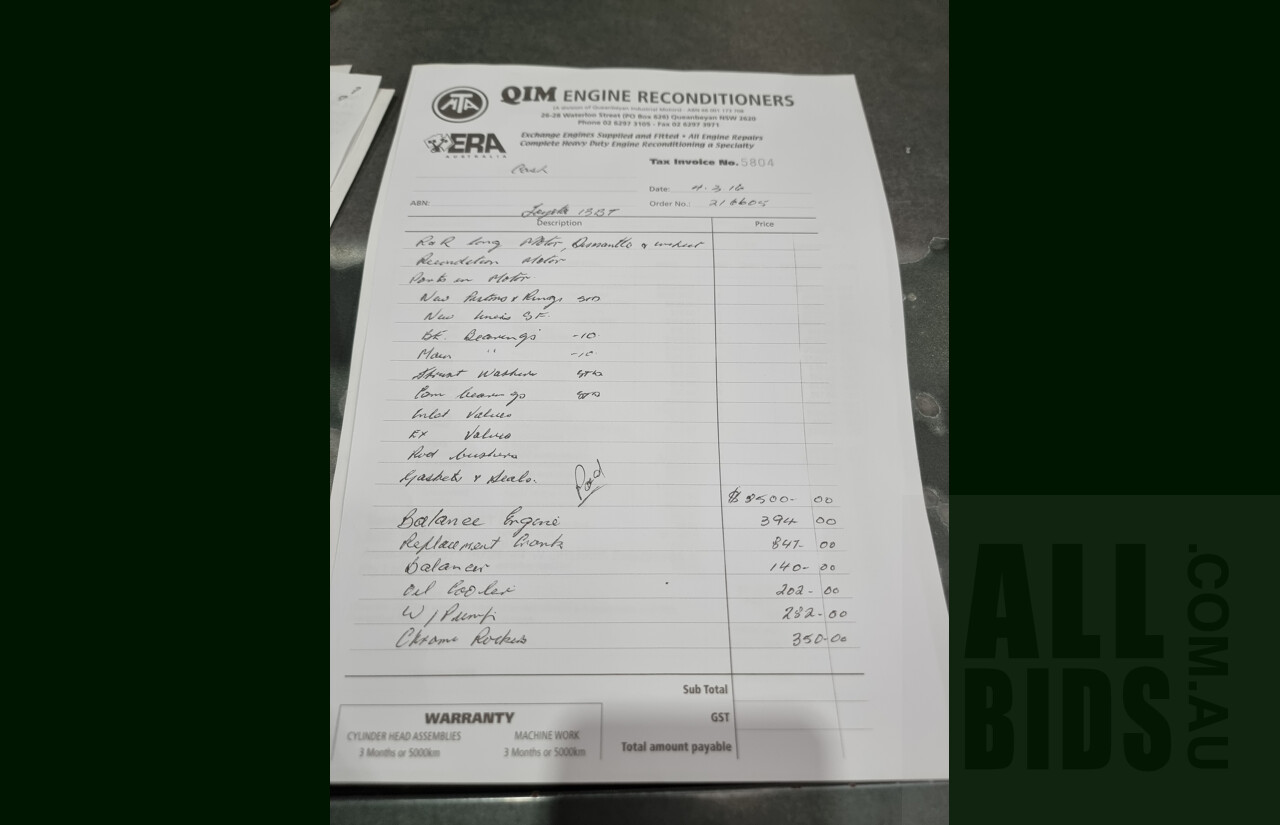 ATA
QIM ENGINE RECONDITIONERS
26-28 Waterloo Street (PO Box 626) Queanbeyan NSW 2620
Phone 02 6297 3105 - Fax 02 6297 3971
ERA
AUSTRALIA
Exchange Engines Supplied and Fitted • All Engine Repairs
Complete Heavy Duty Engine Reconditioning a Specialty
Tax Invoice No. 5804
Cash
Date: 4.3.16
ABN:
Order No.:
Toyota 13BT
Description
Price
R&R long Motor, Dismantle &
Recondition Motor
Parts in Motor
New Pistons & Rings STD
New liners SF.
BE. Bearings -10
Main " -10
Thrust Washers STD
Cam bearings STD
Inlet Valves
Ex Valves
Rod bushers
Gaskets & Seals.
Paid
$ 8500- 00
Balance Engine 394 00
Replacement Crank 847- 00
Balancer 140- 00
Oil Cooler 202- 00
W/Pump 282-00
Chrome Rockers 350-00
Sub Total
GST
Total amount payable
WARRANTY
CYLINDER HEAD ASSEMBLIES
3 Months or 5000km
MACHINE WORK
3 Months or 5000km
ALL
BIDS
.COM.AU